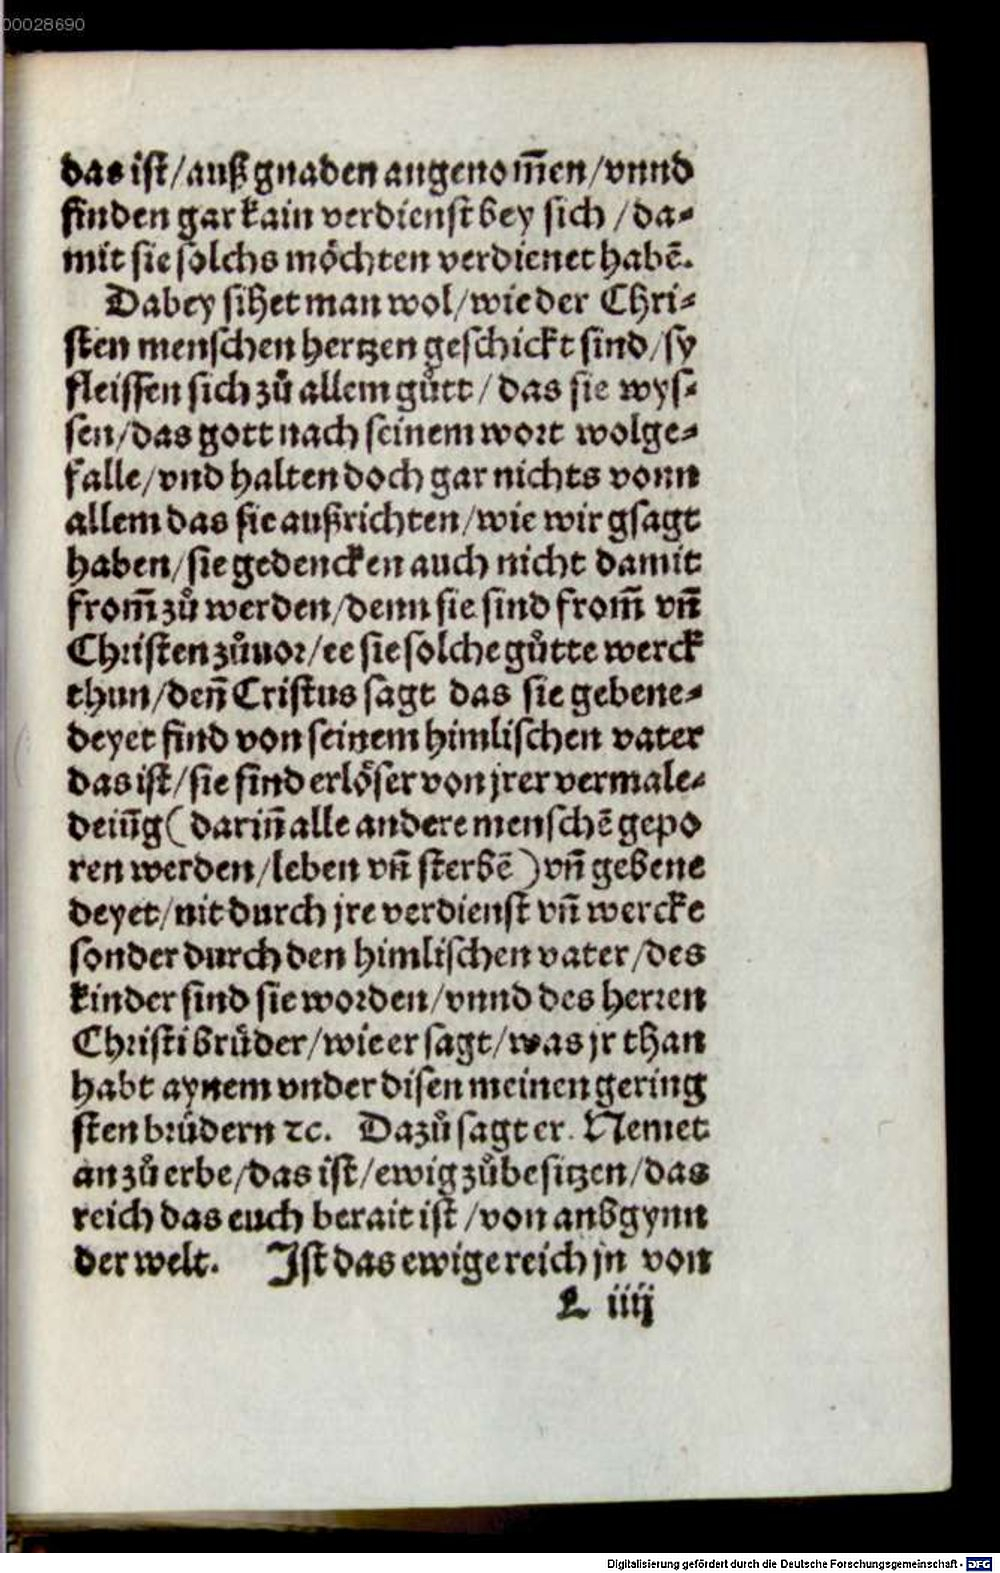 00028690
das ist/auß gnaden angenom̄en/vnnd
finden gar kain verdienst bey sich/da-
mit sie solchs möchten verdienet habē.
Dabey sihet man wol/wie der Chri-
sten menschen hertzen geschickt sind/sy
fleissen sich zů allem gůtt/das sie wys-
sen/das gott nach seinem wort wolge-
falle/vnd halten doch gar nichts vonn
allem das sie außrichten/wie wir gsagt
haben/sie gedencken auch nicht damit
from̄ zů werden/denn sie sind from̄ vn̄
Christen zůuor/ee sie solche gůtte werck
thun/den̄ Cristus sagt das sie gebene-
deyet sind von seinem himlischen vater
das ist/sie sind erlöser von jrer vermale-
deiūg(darin̄ alle andere menschē gepo
ren werden/leben vn̄ sterbē)vn̄ gebene
deyet/nit durch jre verdienst vn̄ wercke
sonder durch den himlischen vater/des
kinder sind sie worden/vnnd des herren
Christi brüder/wie er sagt/was jr than
habt aynem vnder disen meinen gering
sten brüdern ⁊c. Dazů sagt er. Nemet
an zů erbe/das ist/ewig zůbesitzen/das
reich das euch berait ist/von anbgynn
der welt. Ist das ewige reich jn von
L iiij
Digitalisierung gefördert durch die Deutsche Forschungsgemeinschaft - DFG